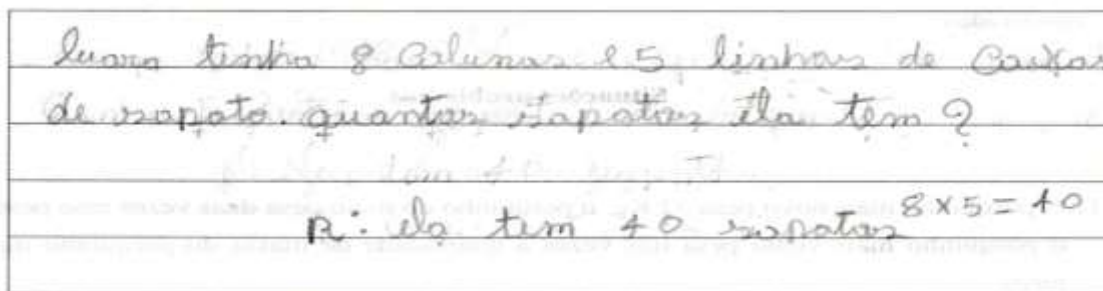 luara tinha 8 Colunas e 5 linhas de Caixas
de sapato. quantos sapatos ela tem?
8 x 5 = 40
R: ela tem 40 sapatos